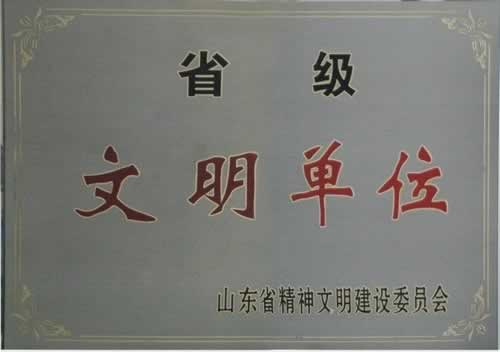 省级
文明单位
山东省精神文明建设委员会